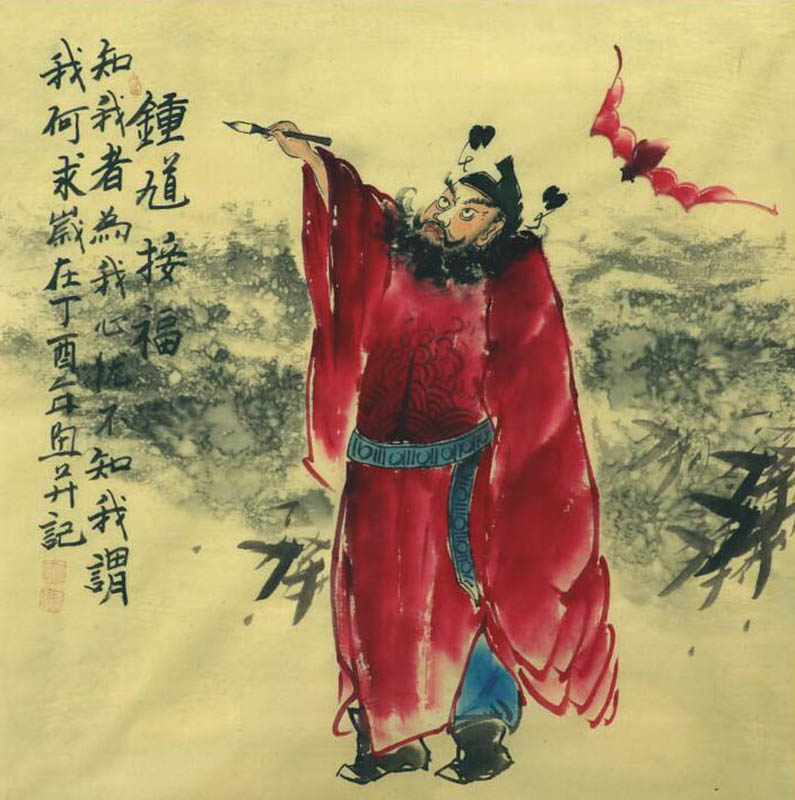 鍾馗接福
知我者為我心忧不知我謂
我何求嵗在丁酉年画并記